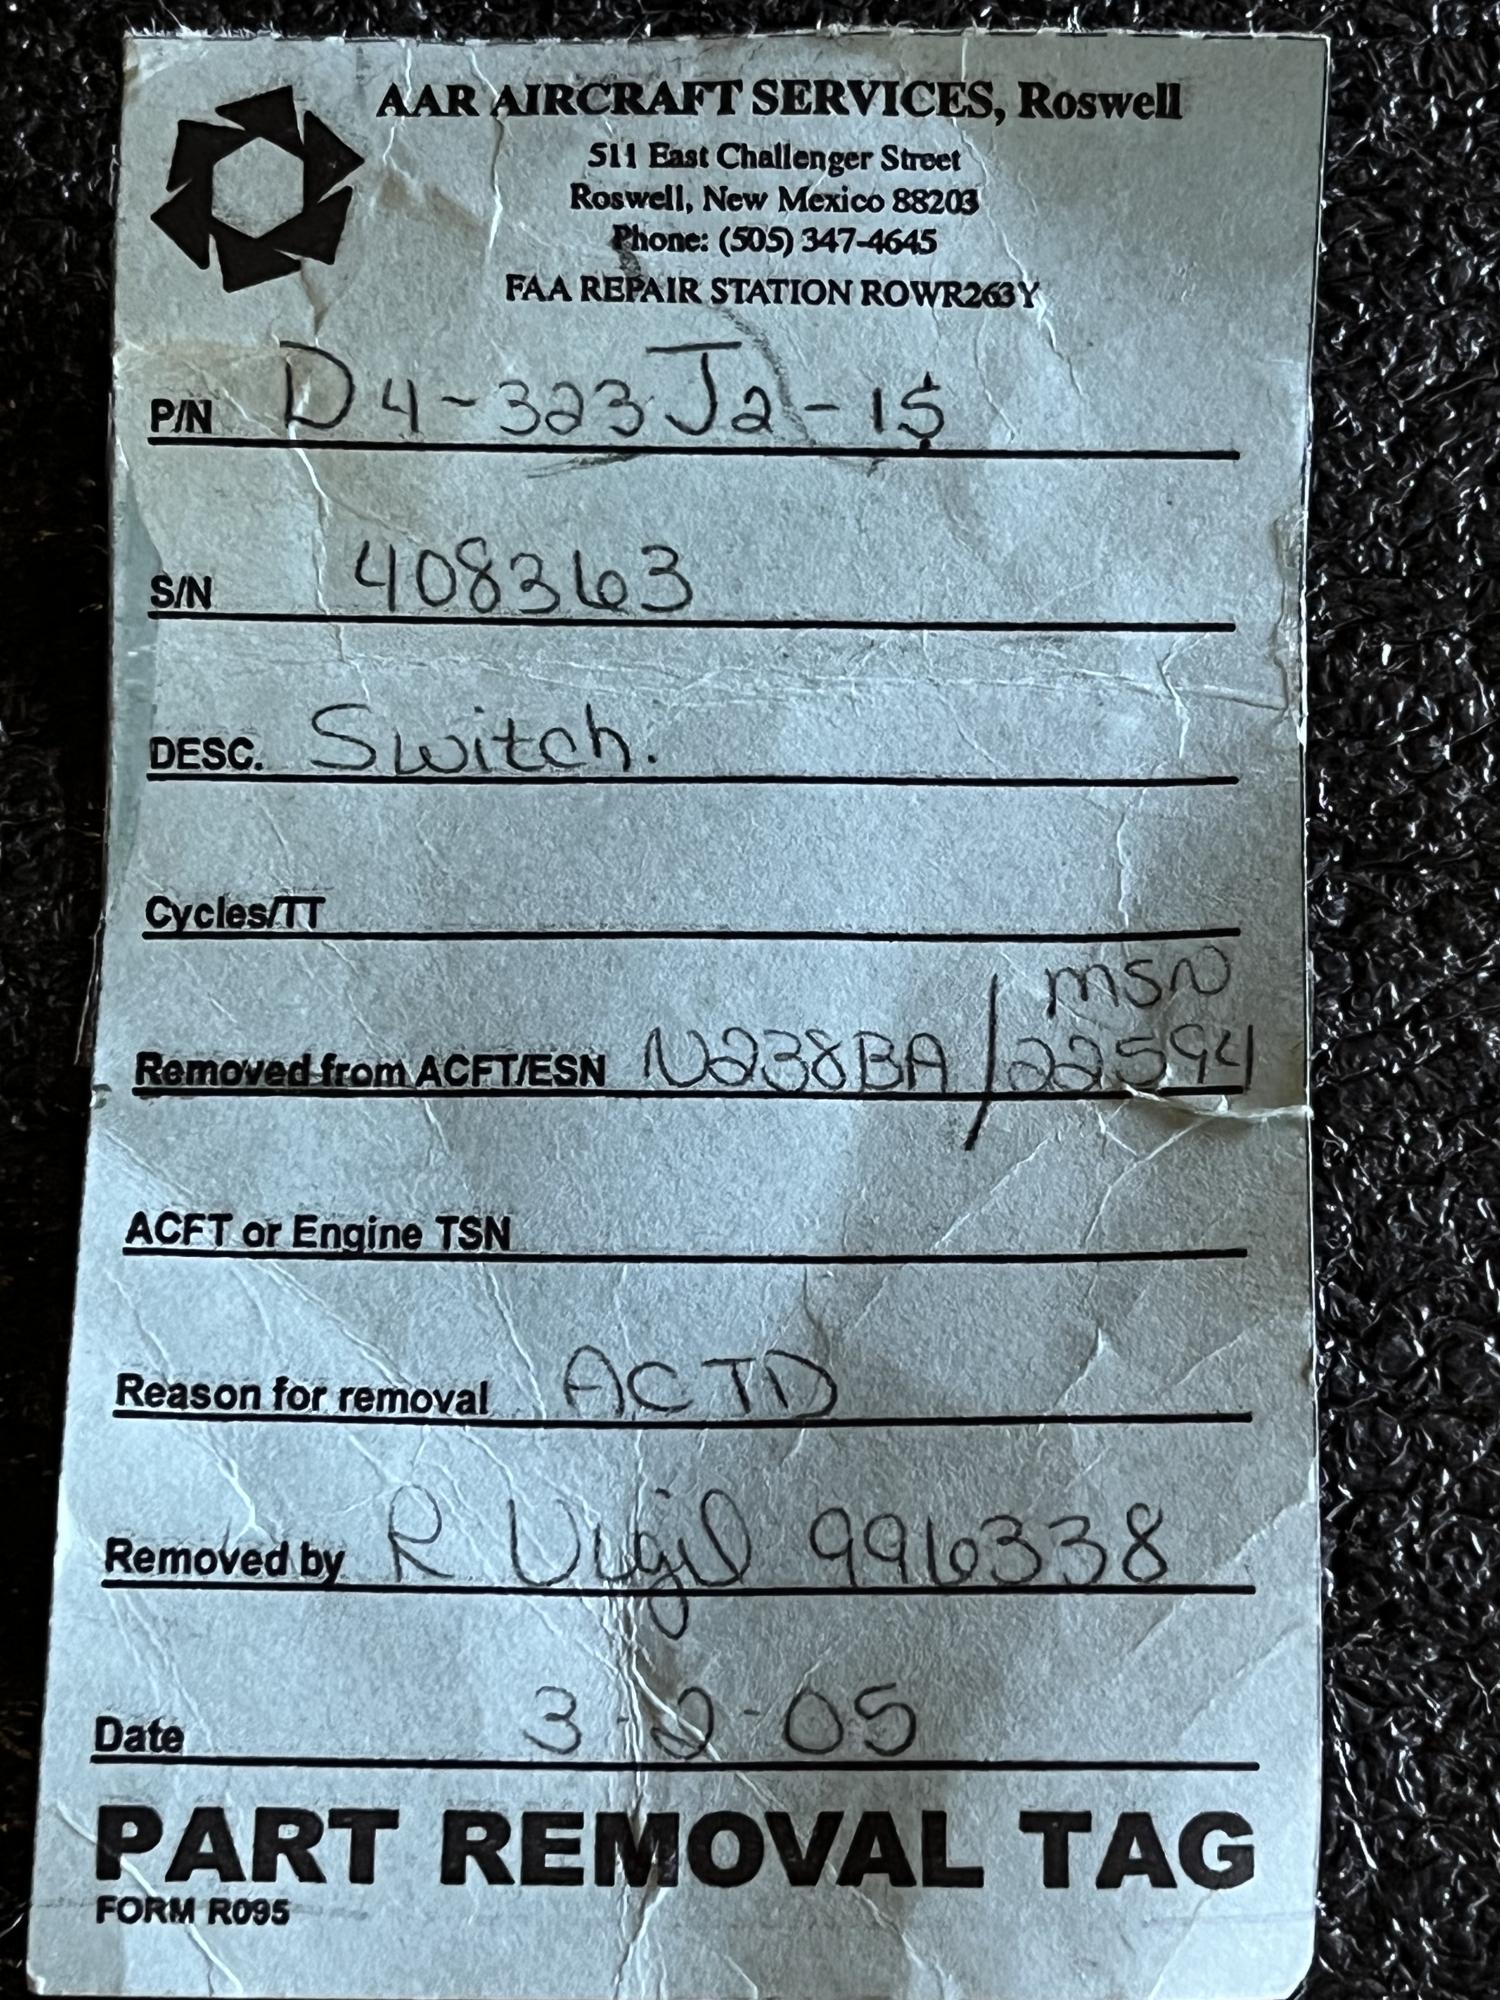 AAR AIRCRAFT SERVICES, Roswell
511 East Challenger Street
Roswell, New Mexico 88203
Phone: (505) 347-4645
FAA REPAIR STATION ROWR263Y
P/N D4-323J2-1$
S/N 408363
DESC. Switch.
Cycles/TT
MSN
Removed from ACFT/ESN N238BA / 22594
ACFT or Engine TSN
Reason for removal ACTD
Removed by R Vigil 996338
Date 3-2-05
PART REMOVAL TAG
FORM R095